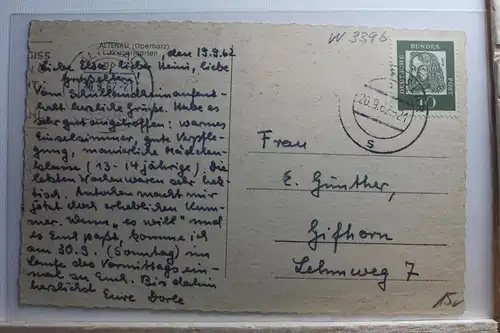 W 3396
ALTENAU (Oberharz)
, den 19.9.62
Liebe Else, lieber Heini, liebe
Vom Schullandheimaufent-
halt herzliche Grüsse. Habe es
sehr gut angetroffen: warmes
Einzelzimmer, gute Verpfle-
gung, manierliche Mädchen-
klasse (13-14 jährige). Die
letzten Wochen waren sehr hek-
tisch. macht mir
jetzt doch erheblichen Kum-
mer. Wenn "es will" und
es Euch paßt, komme ich
am 30.9. (Sonntag) im
Laufe des Vormittags ein-
mal zu Euch. Bis dahin
herzlichst Eure Dorle
DEUTSCHE BUNDESPOST
10
20.9.62
Frau
E. Günther,
Gifhorn
Lehmweg 7
15,-